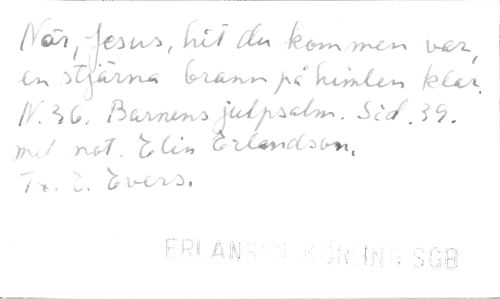 När, Jesus, hit du kommen var,
en stjärna brann på himlen klar.
N. 36. Barnens julpsalm. Sid. 39.
med not. Elin Erlandson.
Tx. E. Evers.
SGB